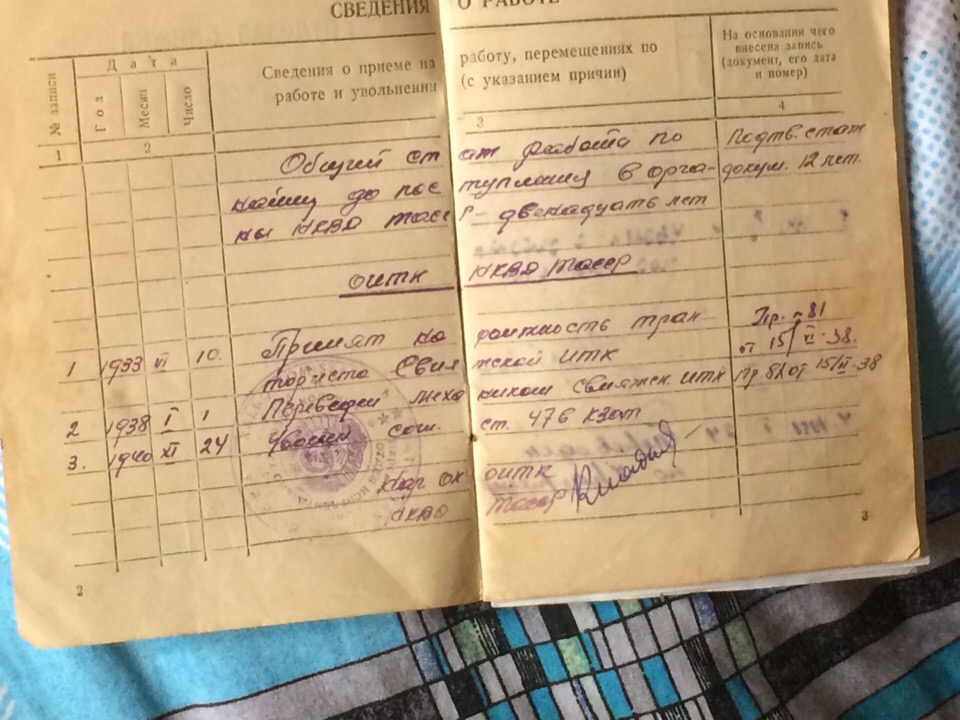 СВЕДЕНИЯ О РАБОТЕ
№ записи
Дата
Год
Месяц
Число
Сведения о приеме на работу, перемещениях по
работе и увольнении (с указанием причин)
На основании чего
внесена запись
(документ, его дата
и номер)
1 2 3 4
Общий стаж работы по Подтв. стаж
найму до поступления в орга- докум. 12 лет.
ны НКВД ТАССР - двенадцать лет
ОИТК НКВД ТАССР
1 1933 VI 10. Принят на должность трак Пр. № 81
ториста Свияжской ИТК от 15/VI-38.
2 1938 I 1 Переведен механиком Свияжск. ИТК
3. 1940 XI 24 Уволен сог. ст. 47б КЗОТ
ОИТК
НКВД ТАССР
2
3